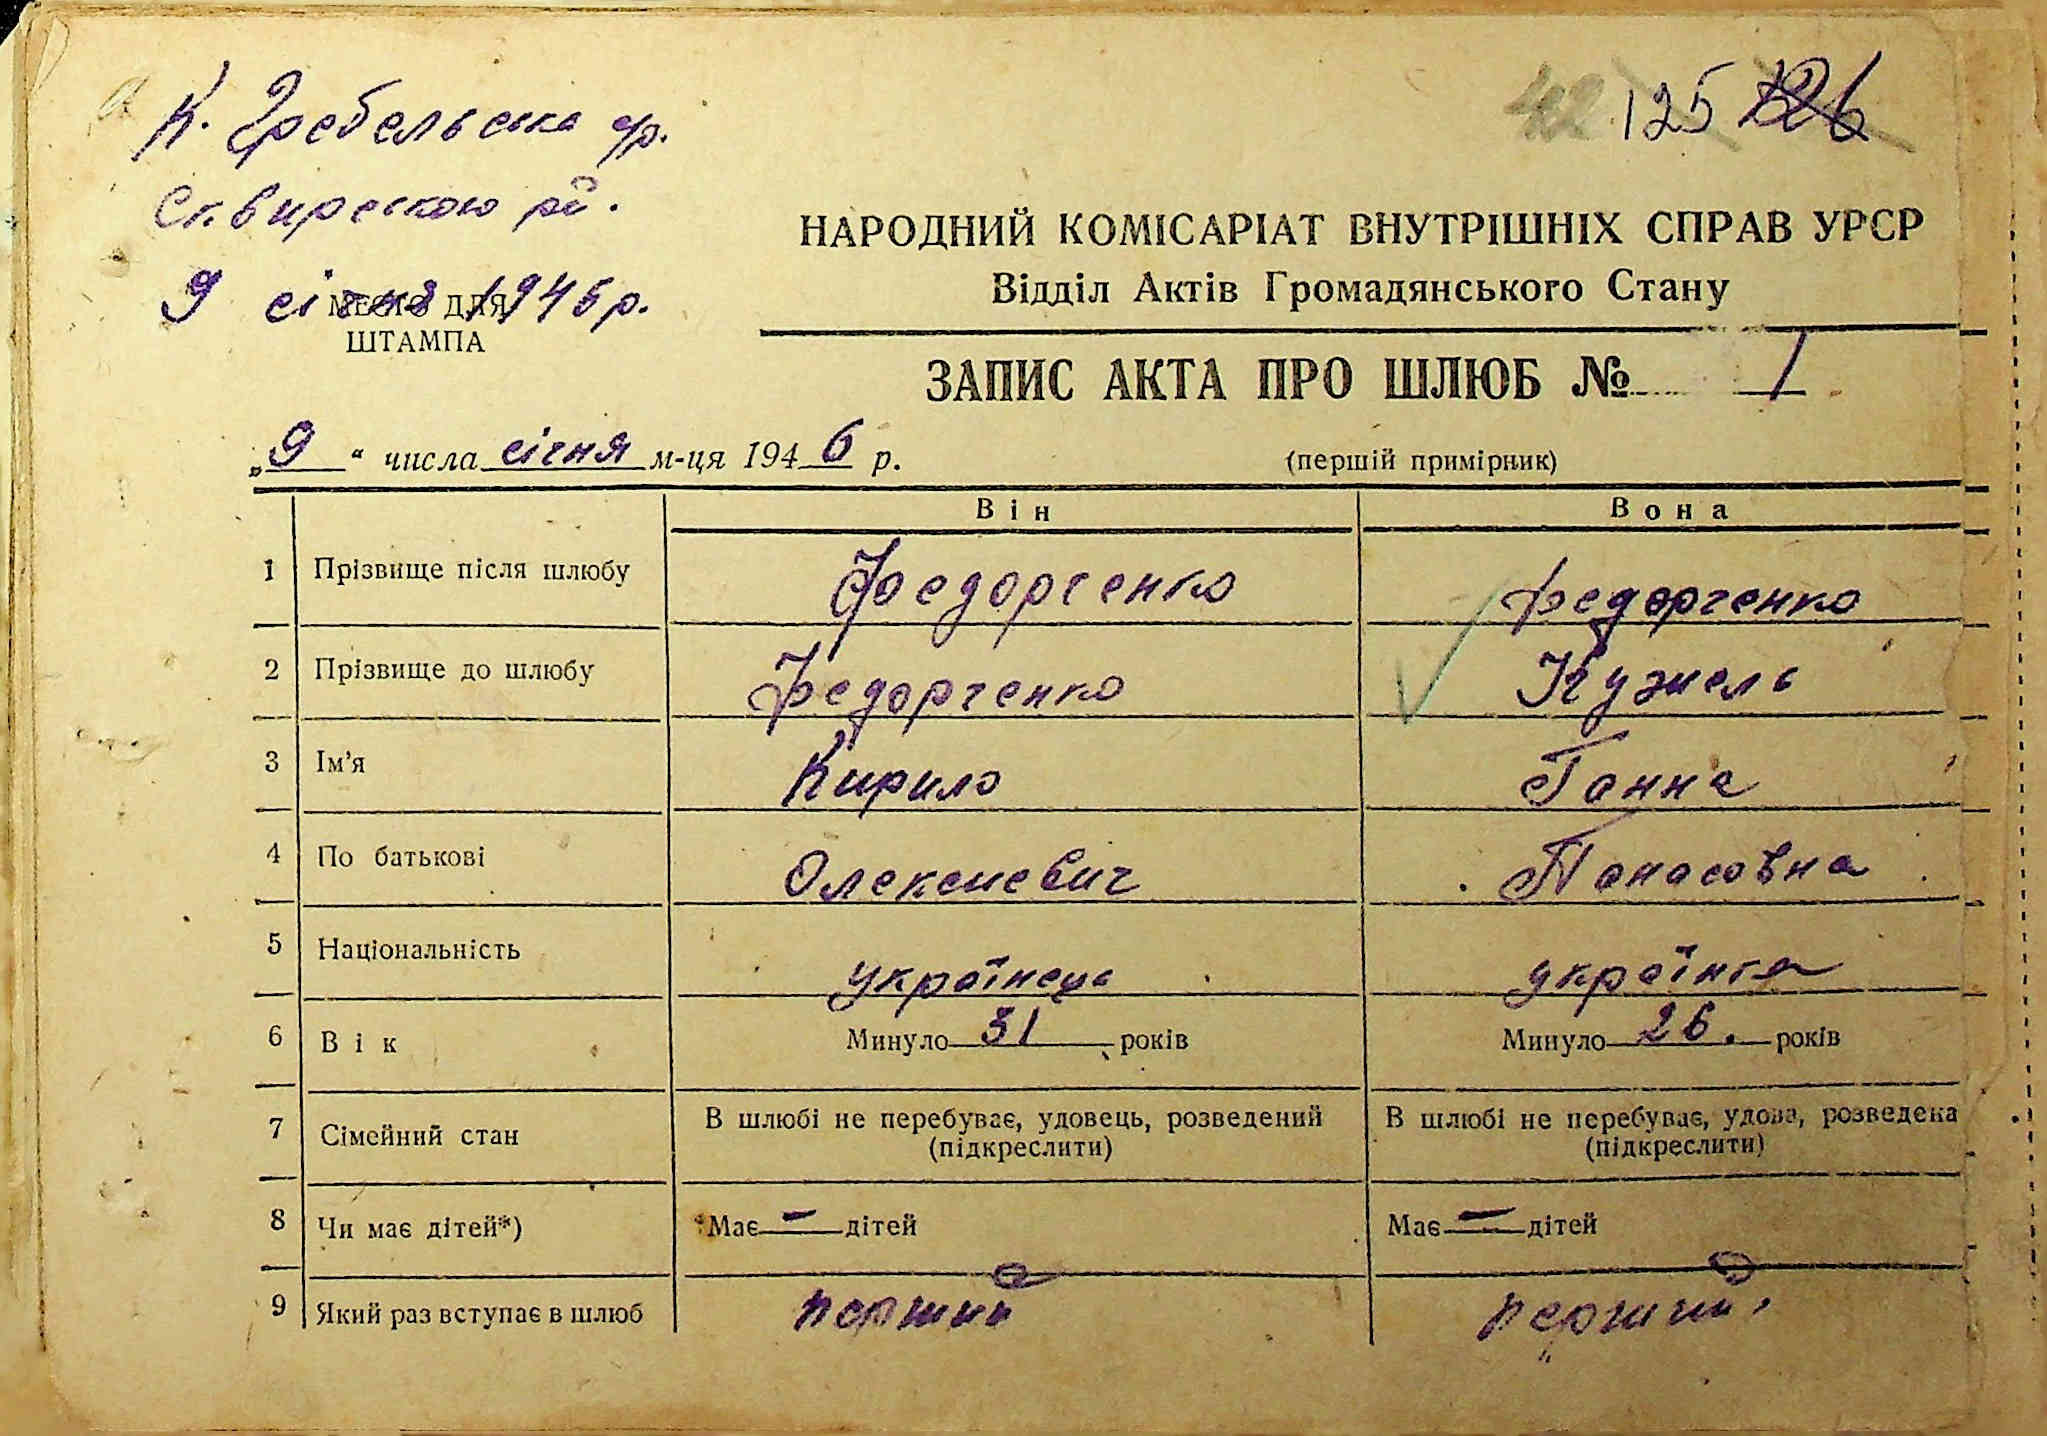 42 125 126
К. Гребельська ср.
Сквирського р-н.
9 січня 1946 р.
МЕСТО ДЛЯ
ШТАМПА
НАРОДНИЙ КОМІСАРІАТ ВНУТРІШНІХ СПРАВ УРСР
Відділ Актів Громадянського Стану
ЗАПИС АКТА ПРО ШЛЮБ № 1
„9“ числа січня м-ця 1946 р.
(першій примірник)
Він Вона
1 Прізвище після шлюбу Федорченко Федорченко
2 Прізвище до шлюбу Федорченко Кужель
3 Ім'я Кирило Ганна
4 По батькові Олексиевич Панасовна
5 Національність українець українка
6 Вік Минуло 31 років Минуло 26. років
7 Сімейний стан В шлюбі не перебуває, удовець, розведений (підкреслити) В шлюбі не перебуває, удова, розведена (підкреслити)
8 Чи має дітей*) Має — дітей Має — дітей
9 Який раз вступає в шлюб перший перший